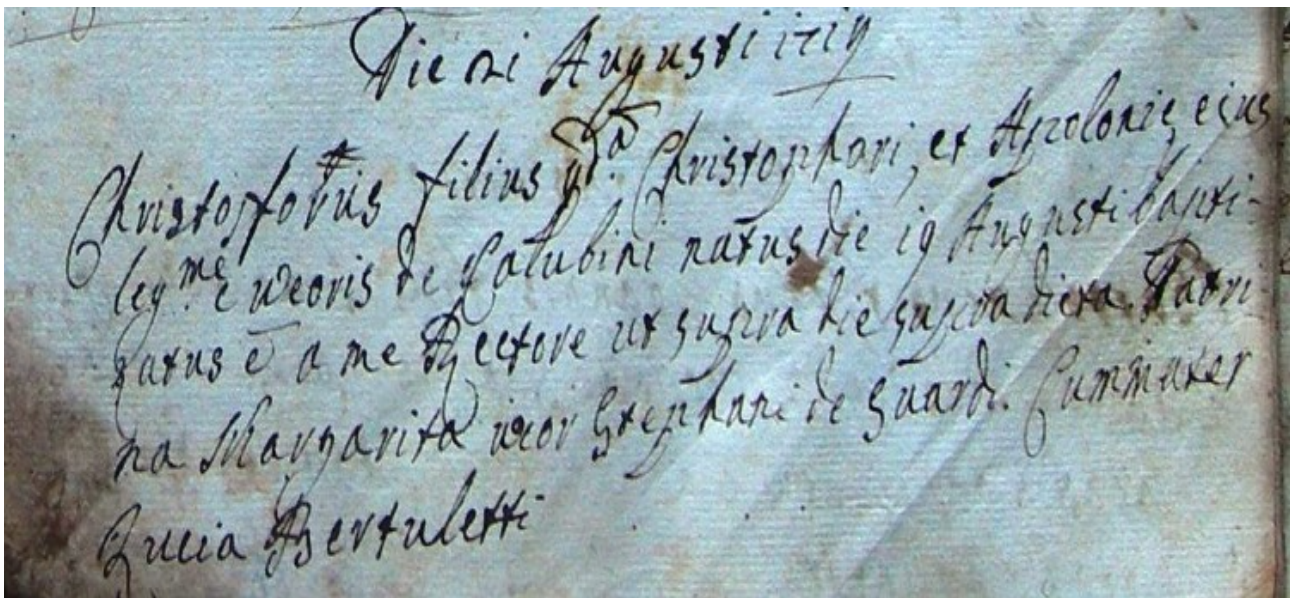 Die 21 Augusti 1719
Christoforus filius qd.ā Christophari, et Apolonie ejus
leg.me uxoris de Colubini natus die 19 Augusti bapti-
zatus ē a me Rectore ut supra die supra dicta. Patri-
na Margarita uxor Stephani de Guardi. Cummater
Lucia Bertuletti